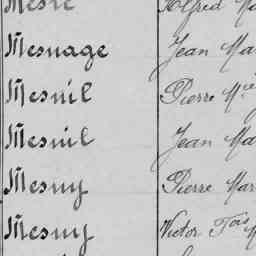 Mesle Alfred Ma
Mesnage Jean Mar
Mesnil Pierre Mie
Mesnil Jean Ma
Mesny Pierre Mar
Mesny Victor Fois M